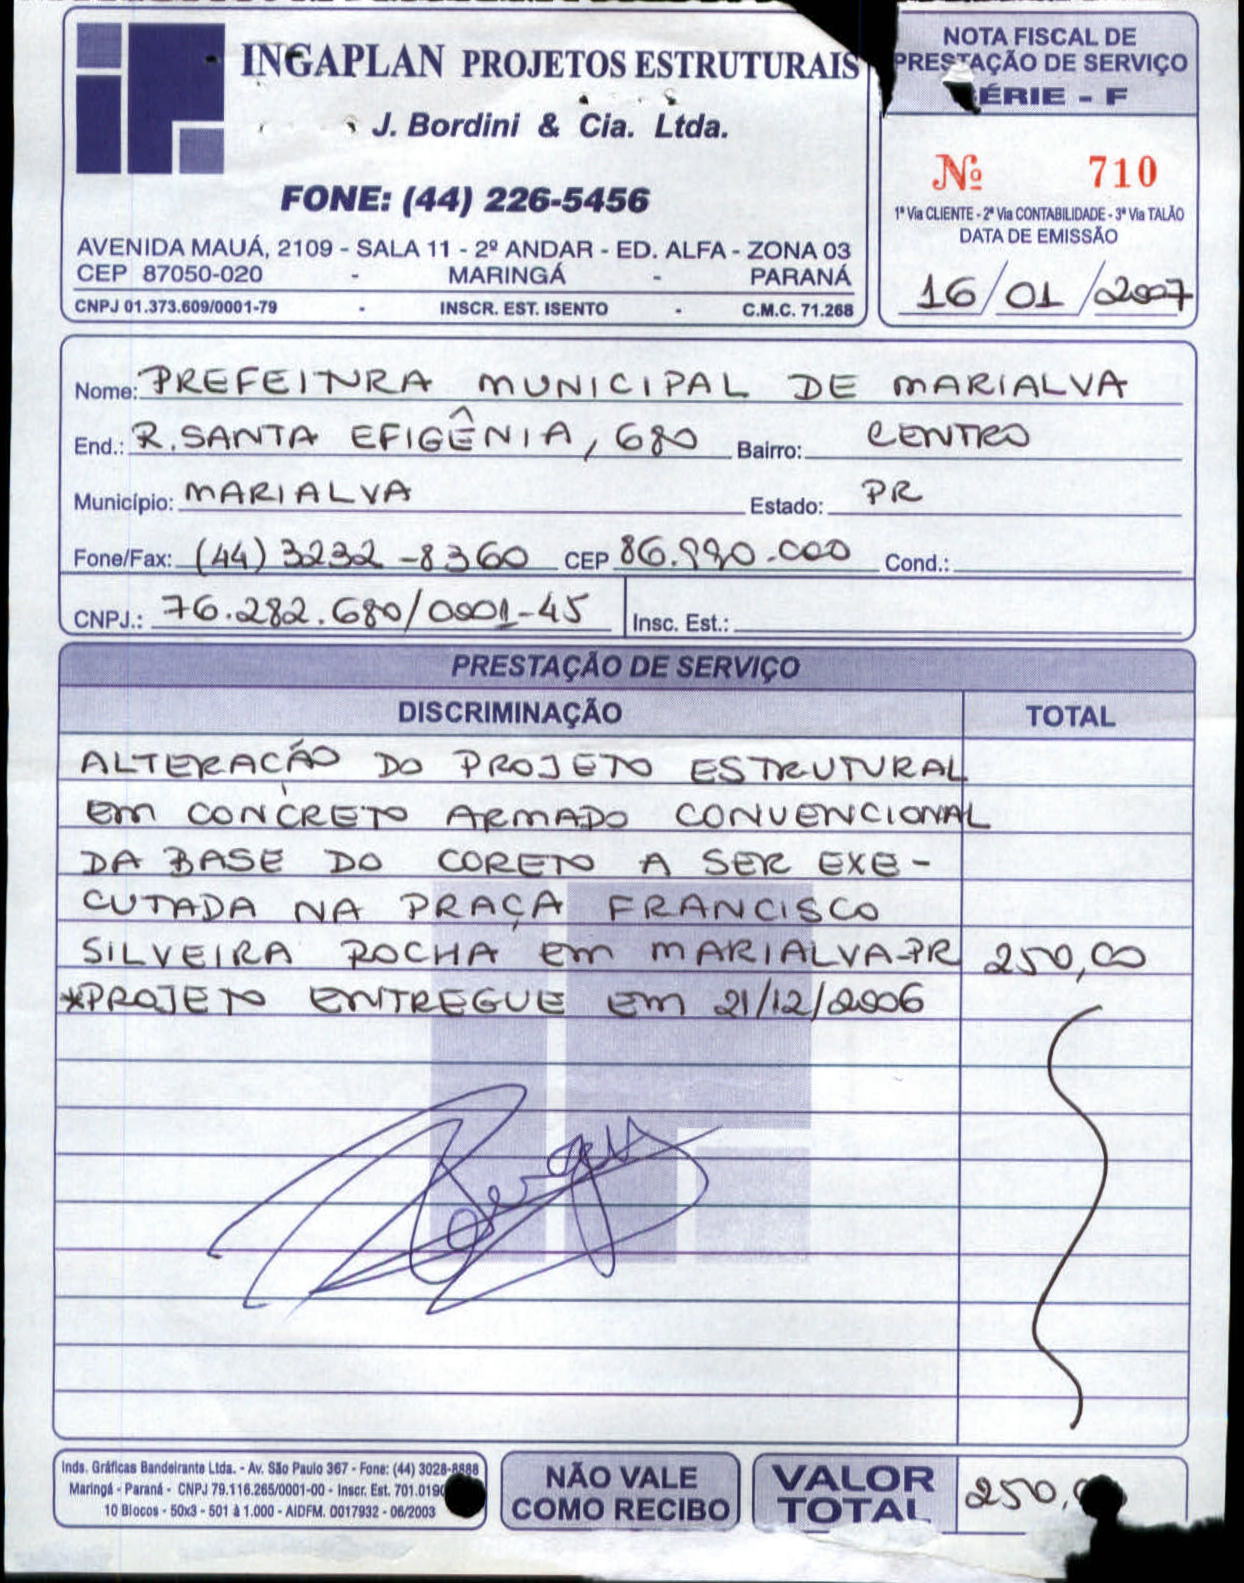 INGAPLAN PROJETOS ESTRUTURAIS
J. Bordini & Cia. Ltda.
FONE: (44) 226-5456
AVENIDA MAUÁ, 2109 - SALA 11 - 2º ANDAR - ED. ALFA - ZONA 03
CEP 87050-020 - MARINGÁ - PARANÁ
CNPJ 01.373.609/0001-79 - INSCR. EST. ISENTO - C.M.C. 71.268
NOTA FISCAL DE
PRESTAÇÃO DE SERVIÇO
SÉRIE - F
Nº 710
1ª Via CLIENTE - 2ª Via CONTABILIDADE - 3ª Via TALÃO
DATA DE EMISSÃO
16/01/2007
Nome: PREFEITURA MUNICIPAL DE MARIALVA
End.: R. SANTA EFIGÊNIA, 680 Bairro: CENTRO
Município: MARIALVA Estado: PR
Fone/Fax: (44) 3232-8360 CEP 86.990.000 Cond.:
CNPJ.: 76.282.680/0001-45 Insc. Est.:
PRESTAÇÃO DE SERVIÇO
DISCRIMINAÇÃO TOTAL
ALTERAÇÃO DO PROJETO ESTRUTURAL
EM CONCRETO ARMADO CONVENCIONAL
DA BASE DO CORETO A SER EXE-
CUTADA NA PRAÇA FRANCISCO
SILVEIRA ROCHA EM MARIALVA-PR 250,00
*PROJETO ENTREGUE EM 21/12/2006
Inds. Gráficas Bandeirante Ltda. - Av. São Paulo 367 - Fone: (44) 3028-8888
Maringá - Paraná - CNPJ 79.116.265/0001-00 - Inscr. Est. 701.0190
10 Blocos - 50x3 - 501 à 1.000 - AIDFM. 0017932 - 06/2003
NÃO VALE
COMO RECIBO
VALOR
TOTAL
250,0